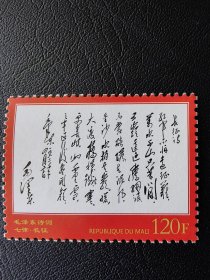 长征诗
红军不怕远征难
万水千山只等闲
五岭逶迤腾细浪
乌蒙磅礴走泥丸
金沙水拍云崖暖
大渡桥横铁索寒
更喜岷山千里雪
三军过后尽开颜
毛泽东
毛泽东诗词
七律·长征
REPUBLIQUE DU MALI
120F